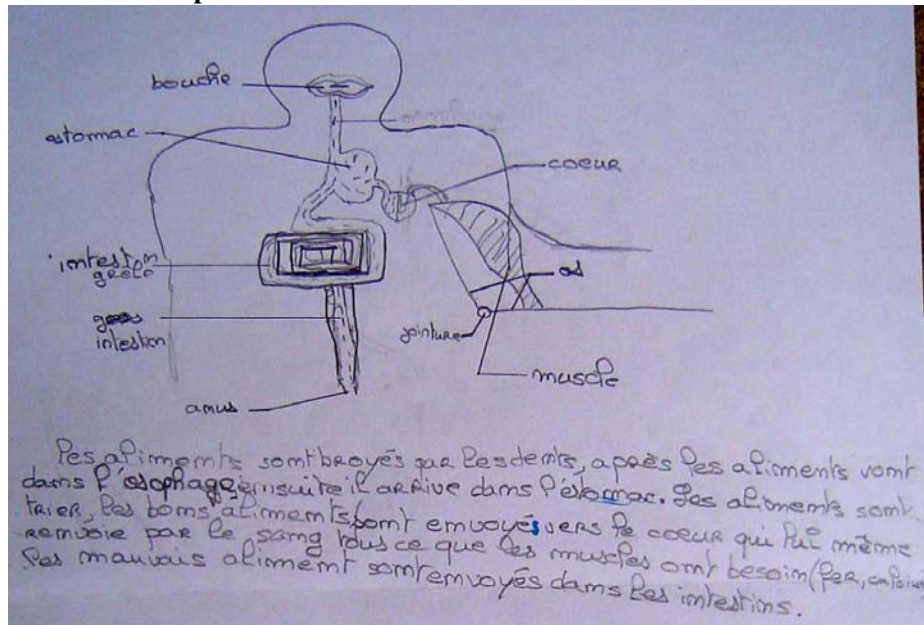 bouche
estomac
coeur
intestin
grele
os
gros
intestion
jointure
muscle
anus
les aliments sont broyés par les dents, après les aliments vont
dans l'œsophage, ensuite il arrive dans l'éstomac. Les aliments sont
trier, les bons aliments sont envoyés vers le coeur qui lui même
renvoie par le sang tous ce que les muscles ont besoin (fer, calcium
les mauvais alinment sont envoyés dans les intestins.